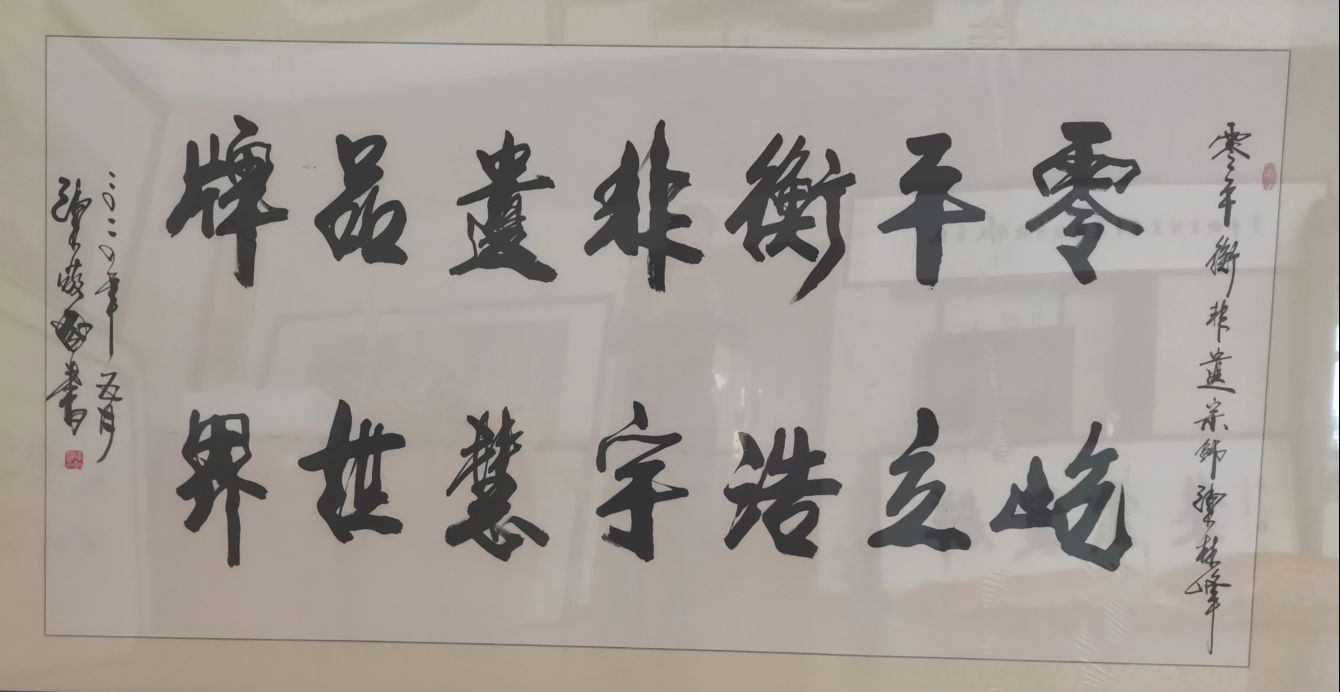 零平衡非遗宗师张林峰
零平衡非遗品牌
屹立浩宇慧世界
二〇二〇年五月